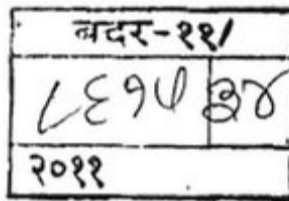 बदर-११/
८६१५ ३४
२०११